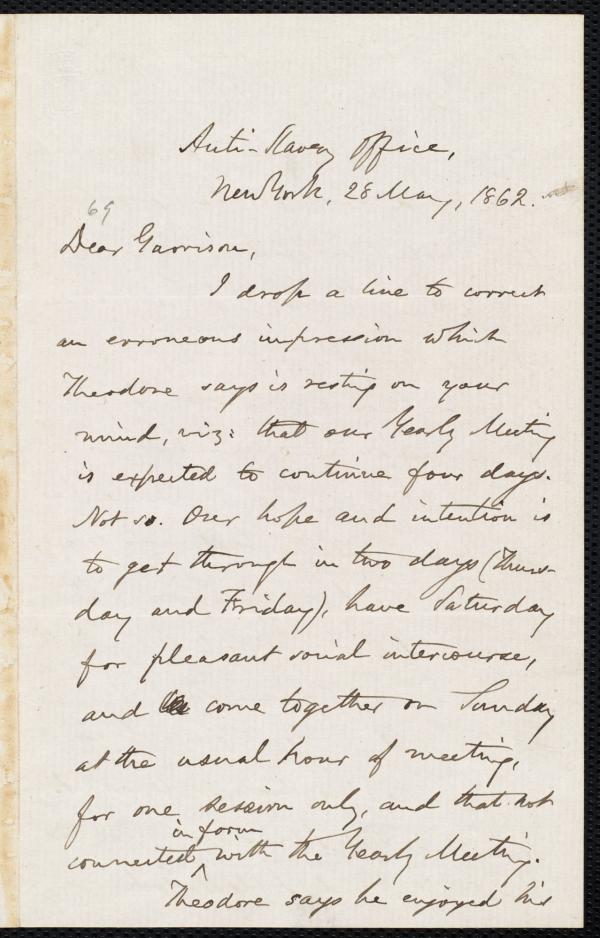 Anti-Slavery Office,
New York, 28 May, 1862.
69
Dear Garrison,
I drop a line to correct
an erroneous impression which
Theodore says is resting on your
mind, viz: that our Yearly Meeting
is expected to continue four days.
Not so. Our hope and intention is
to get through in two days (Thurs-
day and Friday), have Saturday
for pleasant social intercourse,
and come together on Sunday
at the usual hour of meeting,
for one session only, and that not
in form
connected ^ with the Yearly Meeting.
Theodore says he enjoyed his